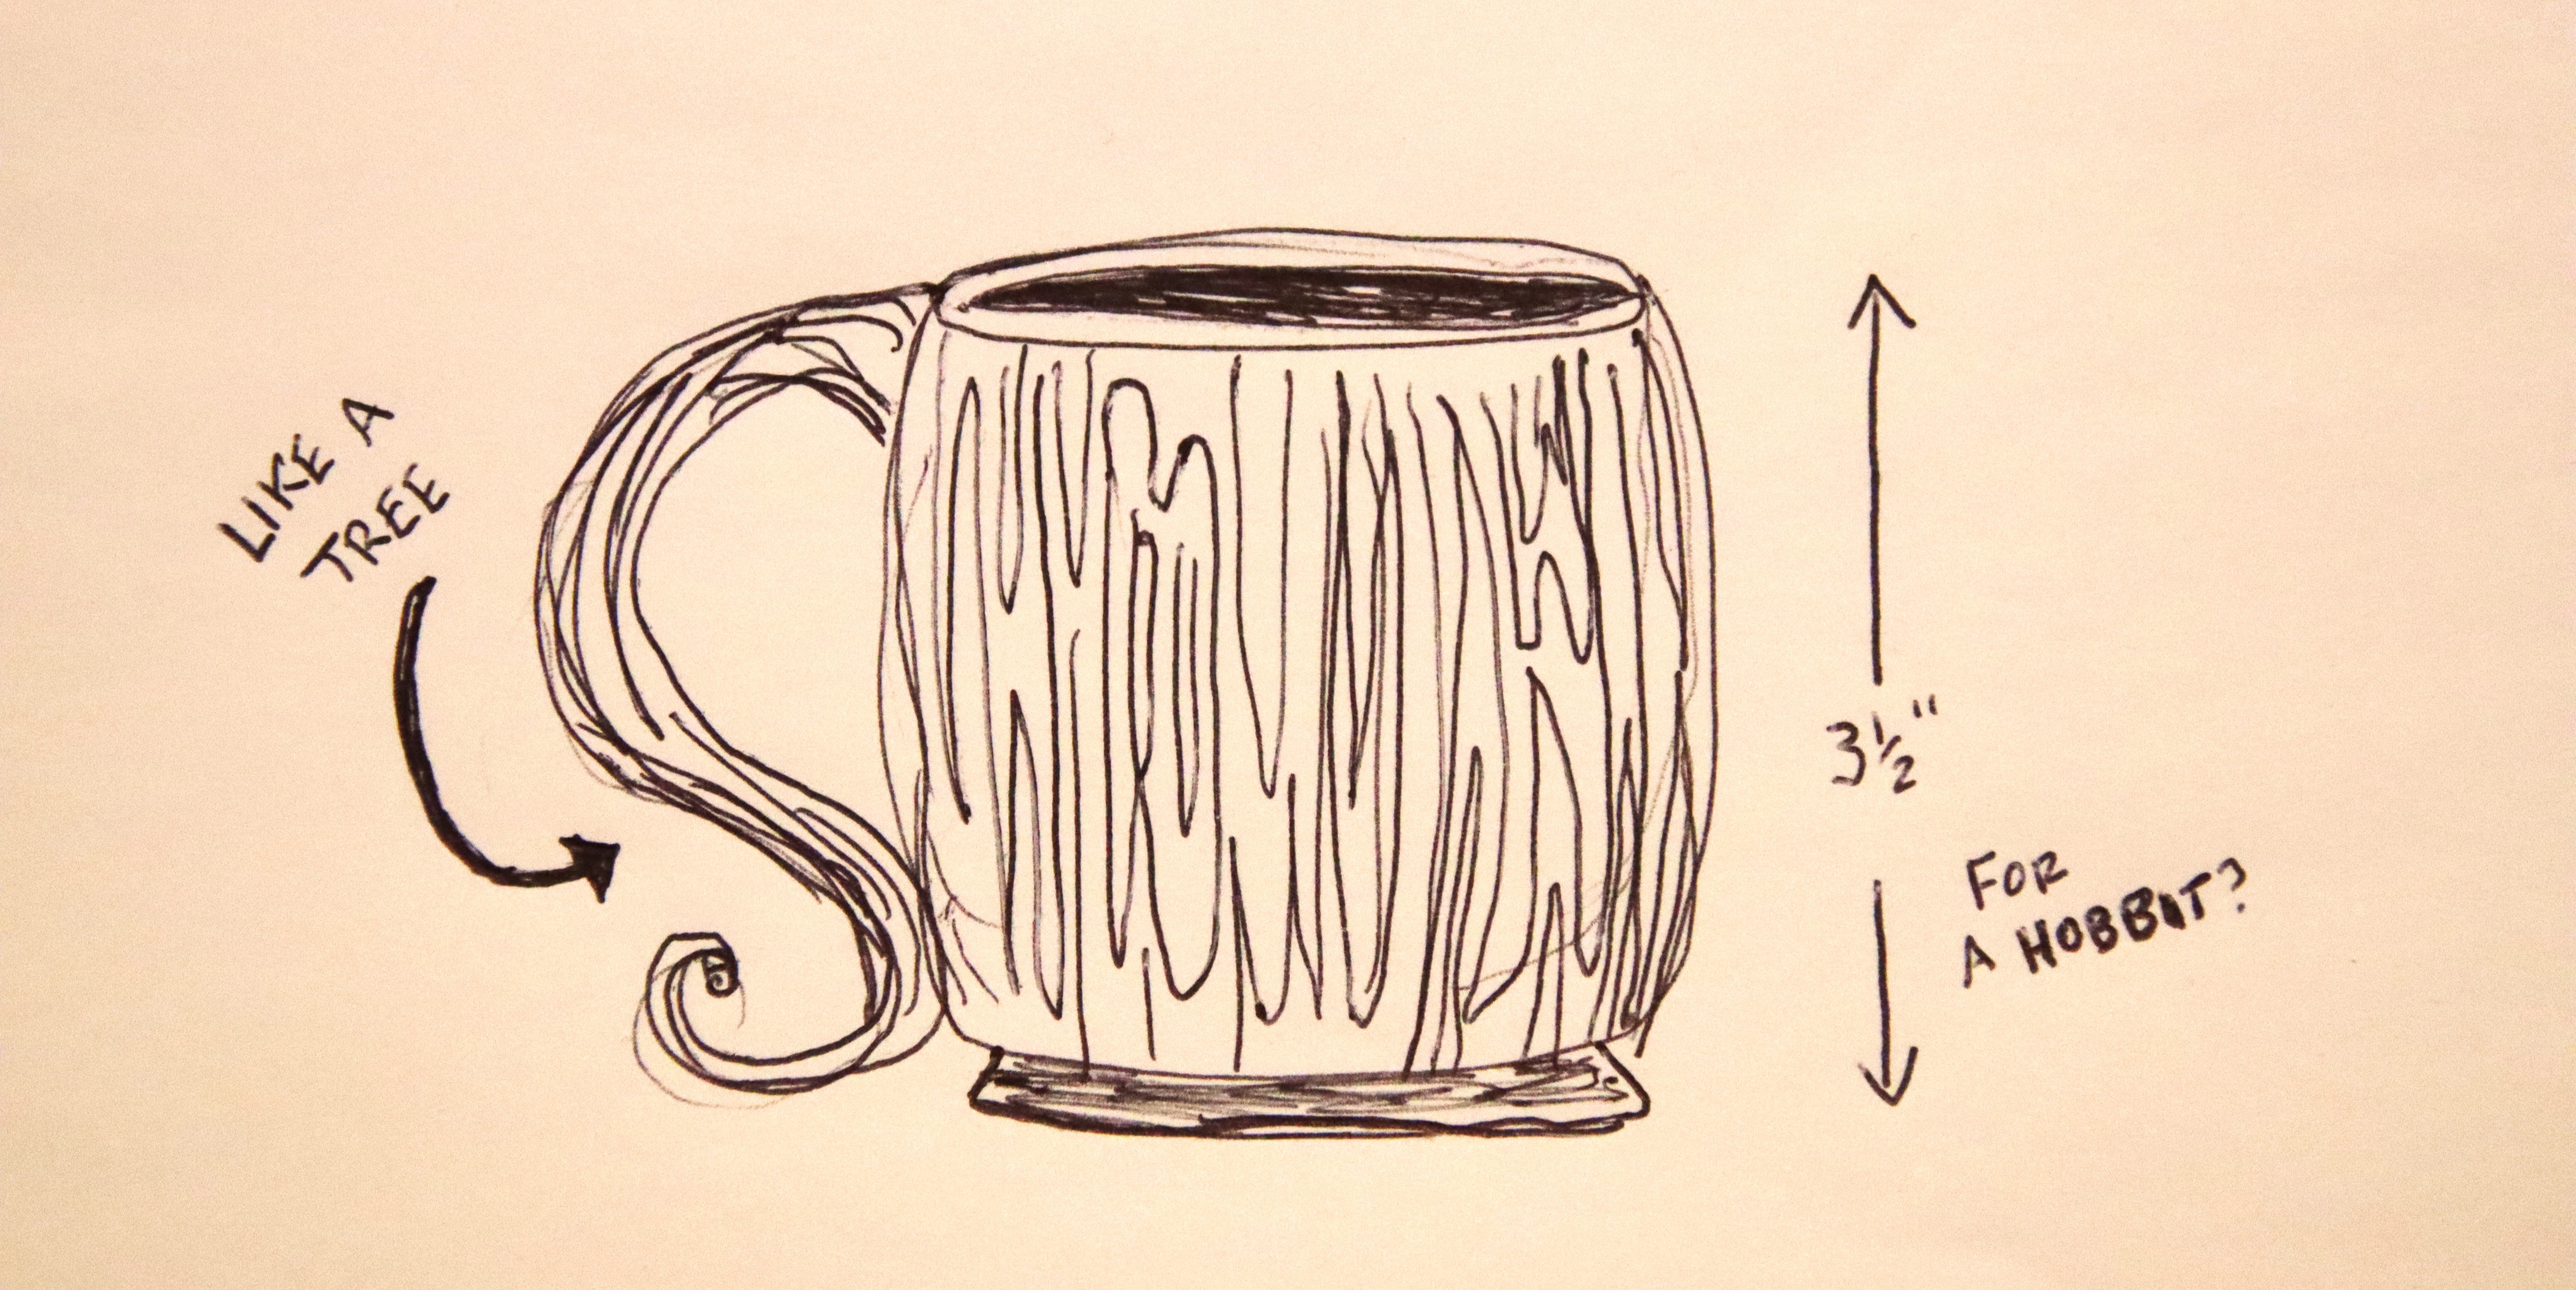 LIKE A
TREE
3½"
FOR
A HOBBIT?